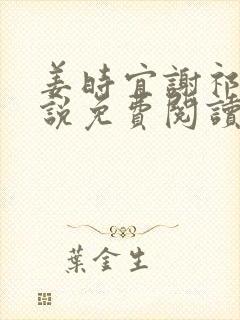 姜時宜謝祁
說免費閱讀
葉金生